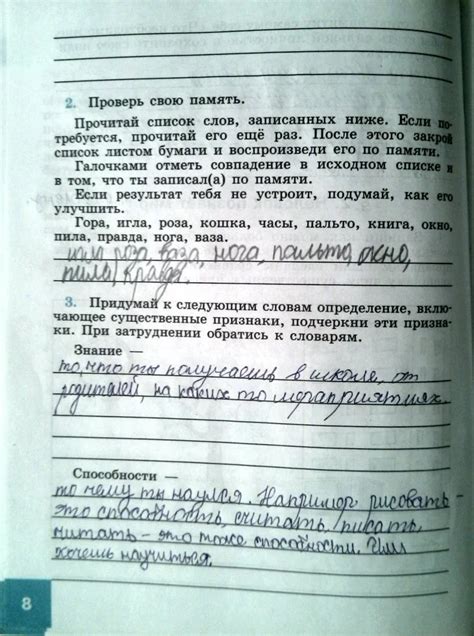 2. Проверь свою память.
Прочитай список слов, записанных ниже. Если по-
требуется, прочитай его ещё раз. После этого закрой
список листом бумаги и воспроизведи его по памяти.
Галочками отметь совпадение в исходном списке и
в том, что ты записал(а) по памяти.
Если результат тебя не устроит, подумай, как его
улучшить.
Гора, игла, роза, кошка, часы, пальто, книга, окно,
пила, правда, нога, ваза.
игла роза, ваза, нога, пальто, окно,
пила, правда.
3. Придумай к следующим словам определение, вклю-
чающее существенные признаки, подчеркни эти призна-
ки. При затруднении обратись к словарям.
Знание —
то, что ты получаешь в школе, от
родителей, на каких то мораприятиях.
Способности —
то чему ты научлся. Например рисовать –
это способность, считать, писать,
читать – это тоже способности. Или
хочешь научиться.
8